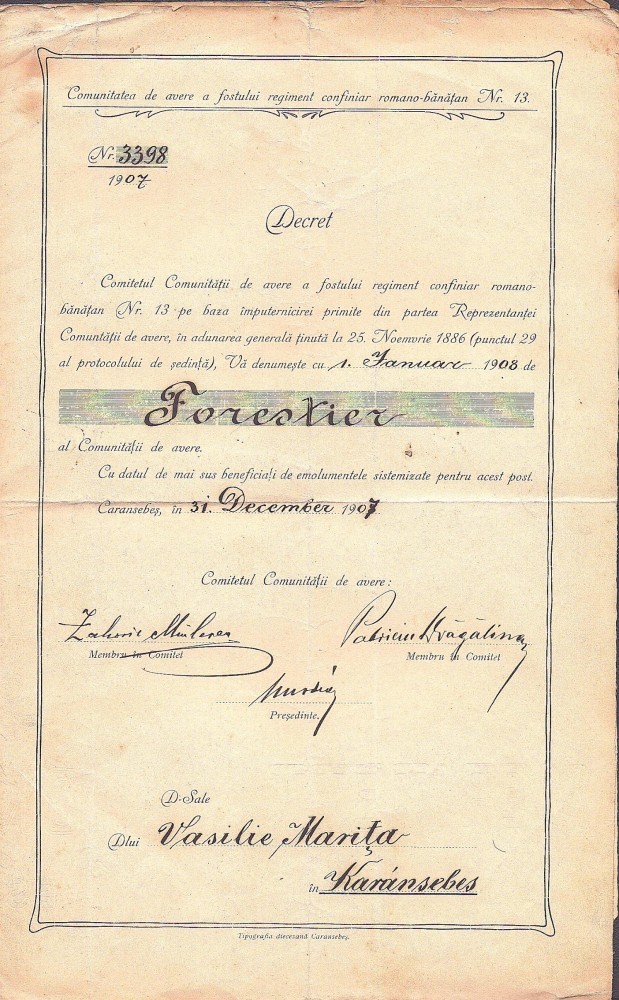 Comunitatea de avere a fostului regiment confiniar romano-bănățan Nr. 13.
Nr. 3398
1907
Decret
Comitetul Comunității de avere a fostului regiment confiniar romano-
bănățan Nr. 13 pe baza împuternicirei primite din partea Reprezentanței
Comuntății de avere, în adunarea generală ținută la 25. Noemvrie 1886 (punctul 29
al protocolului de ședință), Vă denumește cu 1. Januar 1908 de
Forestier
al Comunității de avere.
Cu datul de mai sus beneficiați de emolumentele sistemizate pentru acest post.
Caransebeș, în 31. December 1907
Comitetul Comunității de avere:
Patriciu Drăgălina
Membru în Comitet Membru în Comitet
Președinte.
D-Sale
Dlui Vasilie Marița
în Karánsebes
Tipografia diecesană Caransebeș.